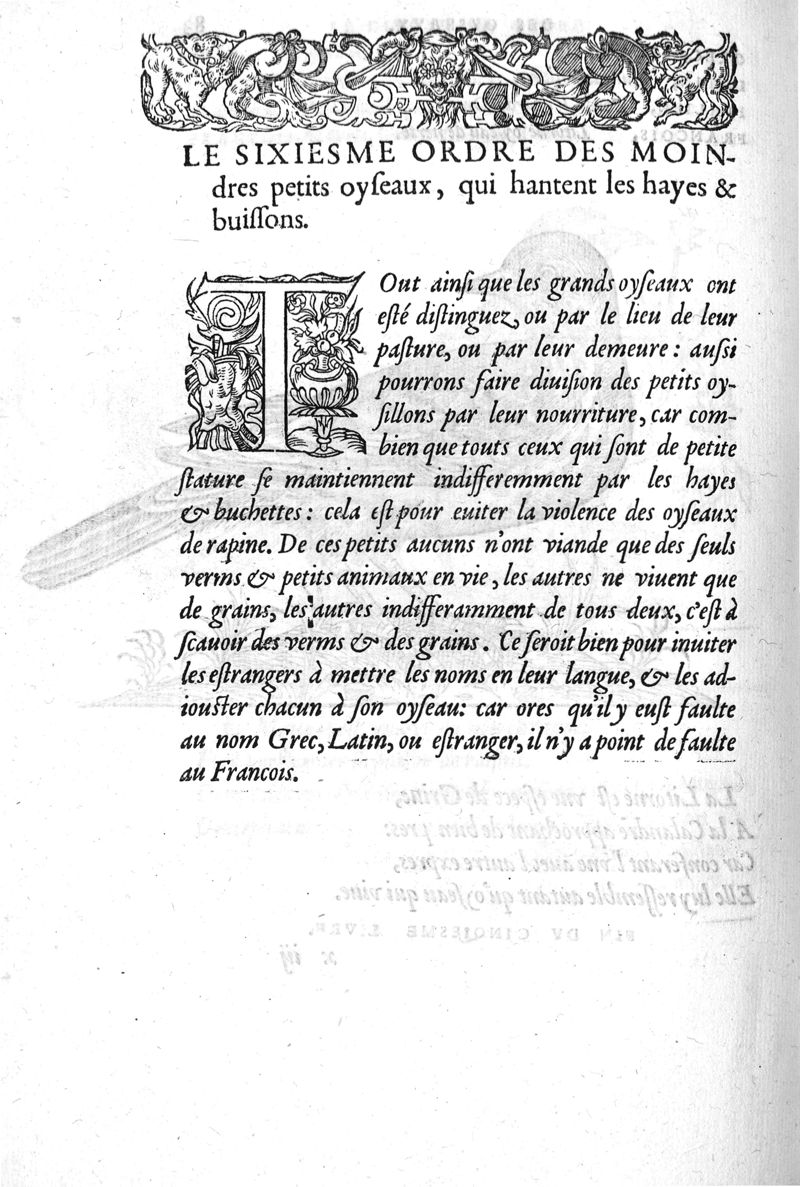 LE SIXIESME ORDRE DES MOIN-
dres petits oyſeaux, qui hantent les hayes &
buiſſons.
TOut ainſi que les grands oyſeaux ont
eſté diſtinguez, ou par le lieu de leur
paſture, ou par leur demeure: auſſi
pourrons faire diuiſion des petits oy-
ſillons par leur nourriture, car com-
bien que touts ceux qui ſont de petite
ſtature ſe maintiennent indifferemment par les hayes
& buchettes: cela eſt pour euiter la violence des oyſeaux
de rapine. De ces petits aucuns n'ont viande que des ſeuls
verms & petits animaux en vie, les autres ne viuent que
de grains, les autres indifferamment de tous deux, c'eſt à
ſcauoir des verms & des grains. Ce ſeroit bien pour inuiter
les eſtrangers à mettre les noms en leur langue, & les ad-
iouſter chacun à ſon oyſeau: car ores qu'il y euſt faulte
au nom Grec, Latin, ou eſtranger, il n'y a point de faulte
au Francois.
La Litorne eſt vne eſpece de Griue,
A la Calandre approchant de bien pres:
Car conferant l'vne auec l'autre expres,
Elle luy reſſemble autant qu'oyſeau qui viue.
FIN DV CINQIESME LIVRE.
x iij